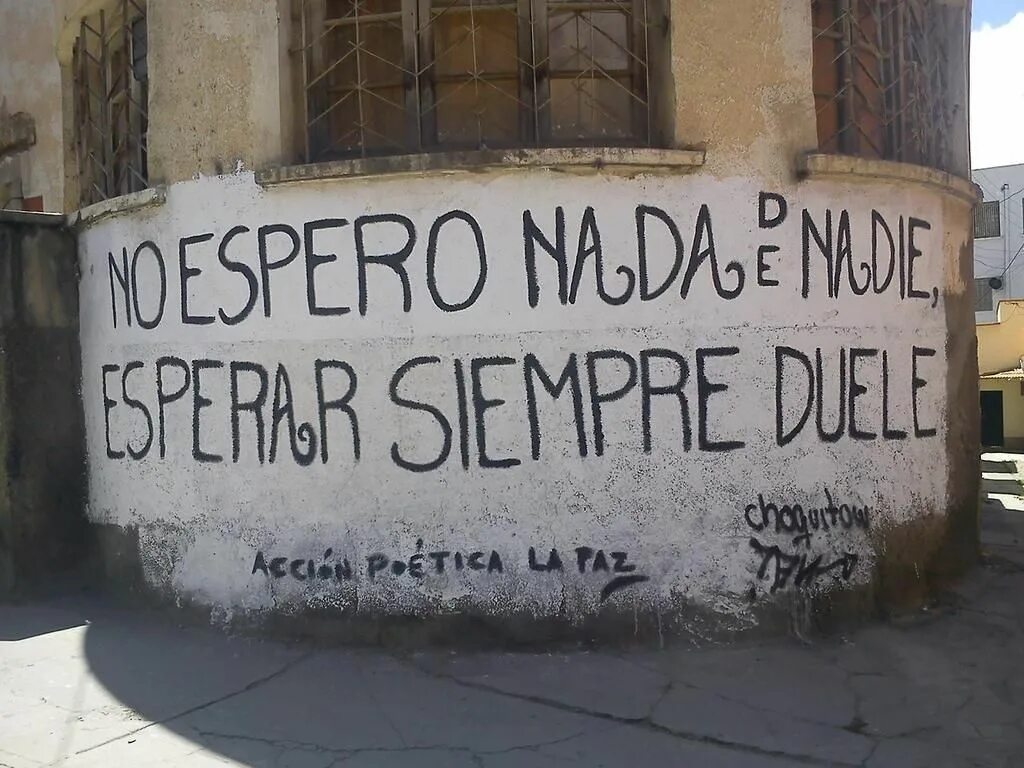 NO ESPERO NADA DE NADIE,
ESPERAR SIEMPRE DUELE
ACCIÓN POÉTICA LA PAZ